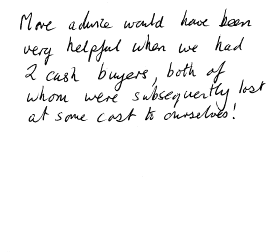 More advice would have been
very helpful when we had
2 cash buyers, both of
whom were subsequently lost
at some cost to ourselves!